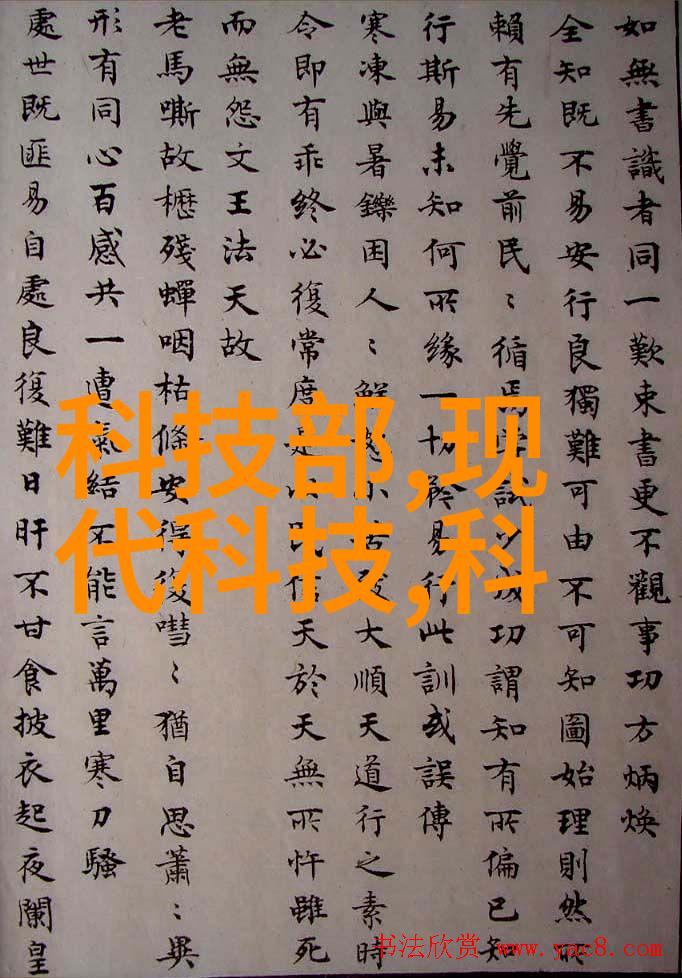 如無書識者同一歎束書更不觀事功方炳煥
全知既不易安行良獨難可由不可知圖始理則然所
賴有先覺前民〻循焉學試以成功謂知有所偏已知
行斯易未知何所緣一切矜易行此訓或誤傳
寒凍與暑鑠困人〻鮮大順天道行之素時
令即有乖終必復常度是以既信天於天無所忤雖死
而無怨文王法天故
老馬嘶故櫪殘蟬咽枯條安得復嘒〻猶自思蕭〻異
形有同心百感共一遭氣結不能言萬里寒刀騷
處世既匪易自處良復難日旰不甘食披衣起夜闌皇
科技部,现
代科技,科
书法欣赏 www.yac8.com